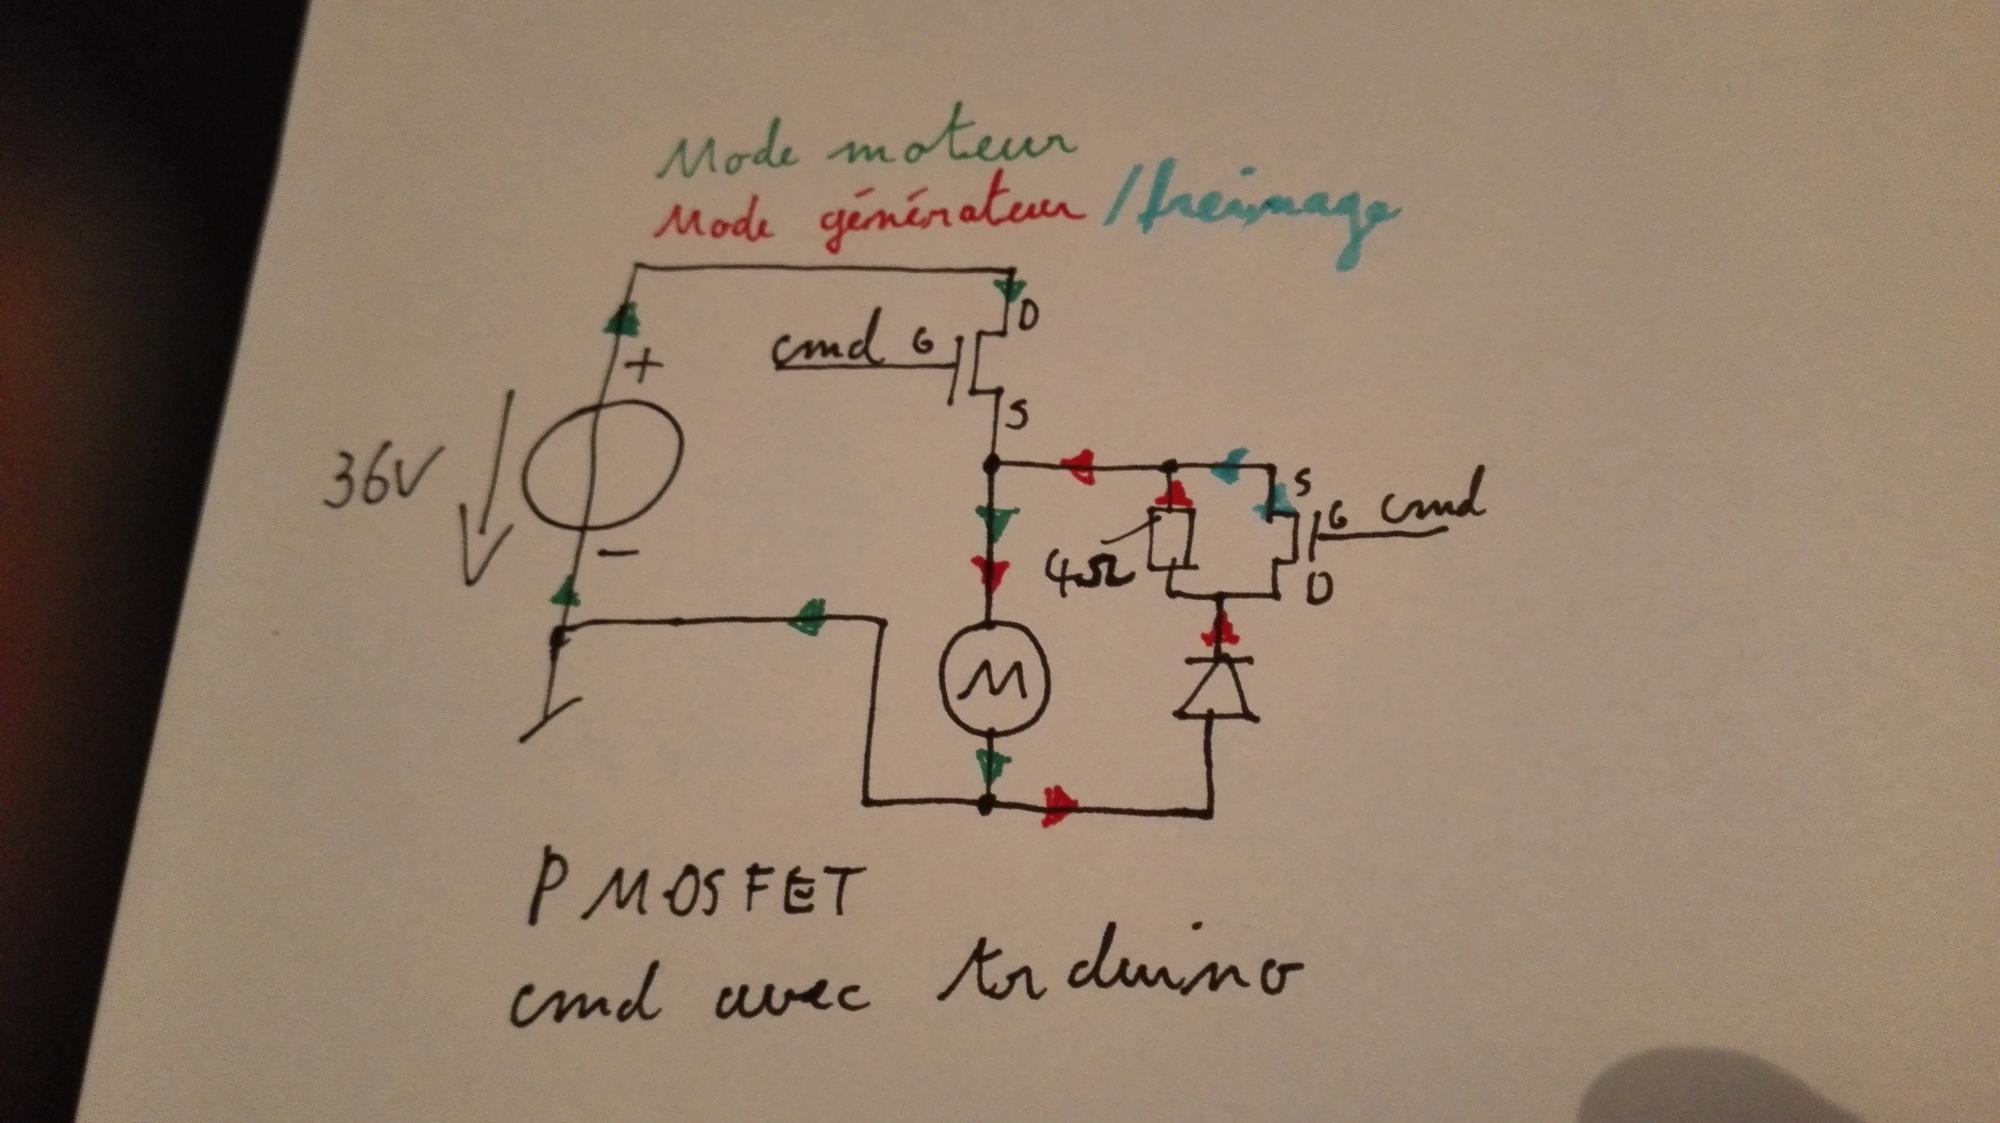 Mode moteur
Mode générateur / freinage
D
cmd G
+
S
36V
S
G cmd
4Ω
D
−
M
P MOSFET
cmd avec Arduino